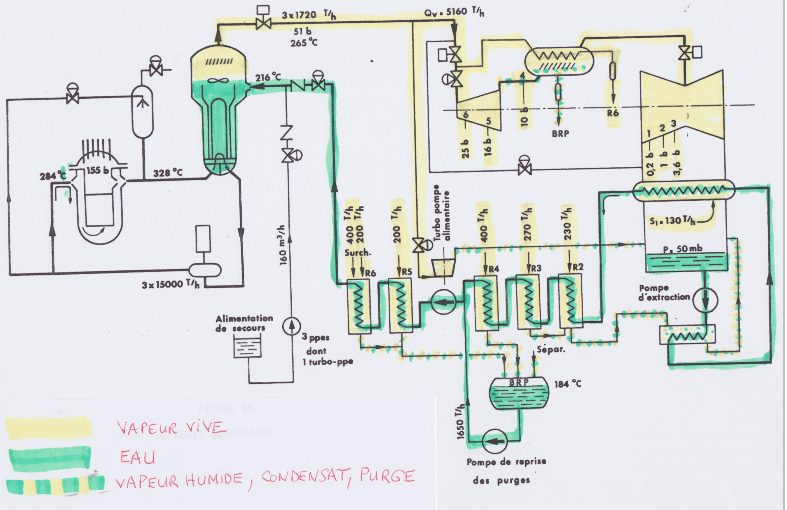 3x1720 T/h
51 b
265 °C
Qv = 5160 T/h
216 °C
4
10 b
BRP
R6
6
25 b
5
16 b
1
0,2 b
2
1 b
3
3,6 b
284 °C
155 b
328 °C
3x15000 T/h
160 m³/h
Alimentation
de secours
3 ppes
dont
1 turbo-ppe
400 T/h
200 T/h
Surch.
R6
200 T/h
R5
Turbo pompe
alimentaire
400 T/h
R4
270 T/h
R3
230 T/h
R2
S1=130 T/h
P= 50 mb
Pompe
d'extraction
Sépar.
BRP
184 °C
1650 T/h
Pompe de reprise
des purges
VAPEUR VIVE
EAU
VAPEUR HUMIDE, CONDENSAT, PURGE